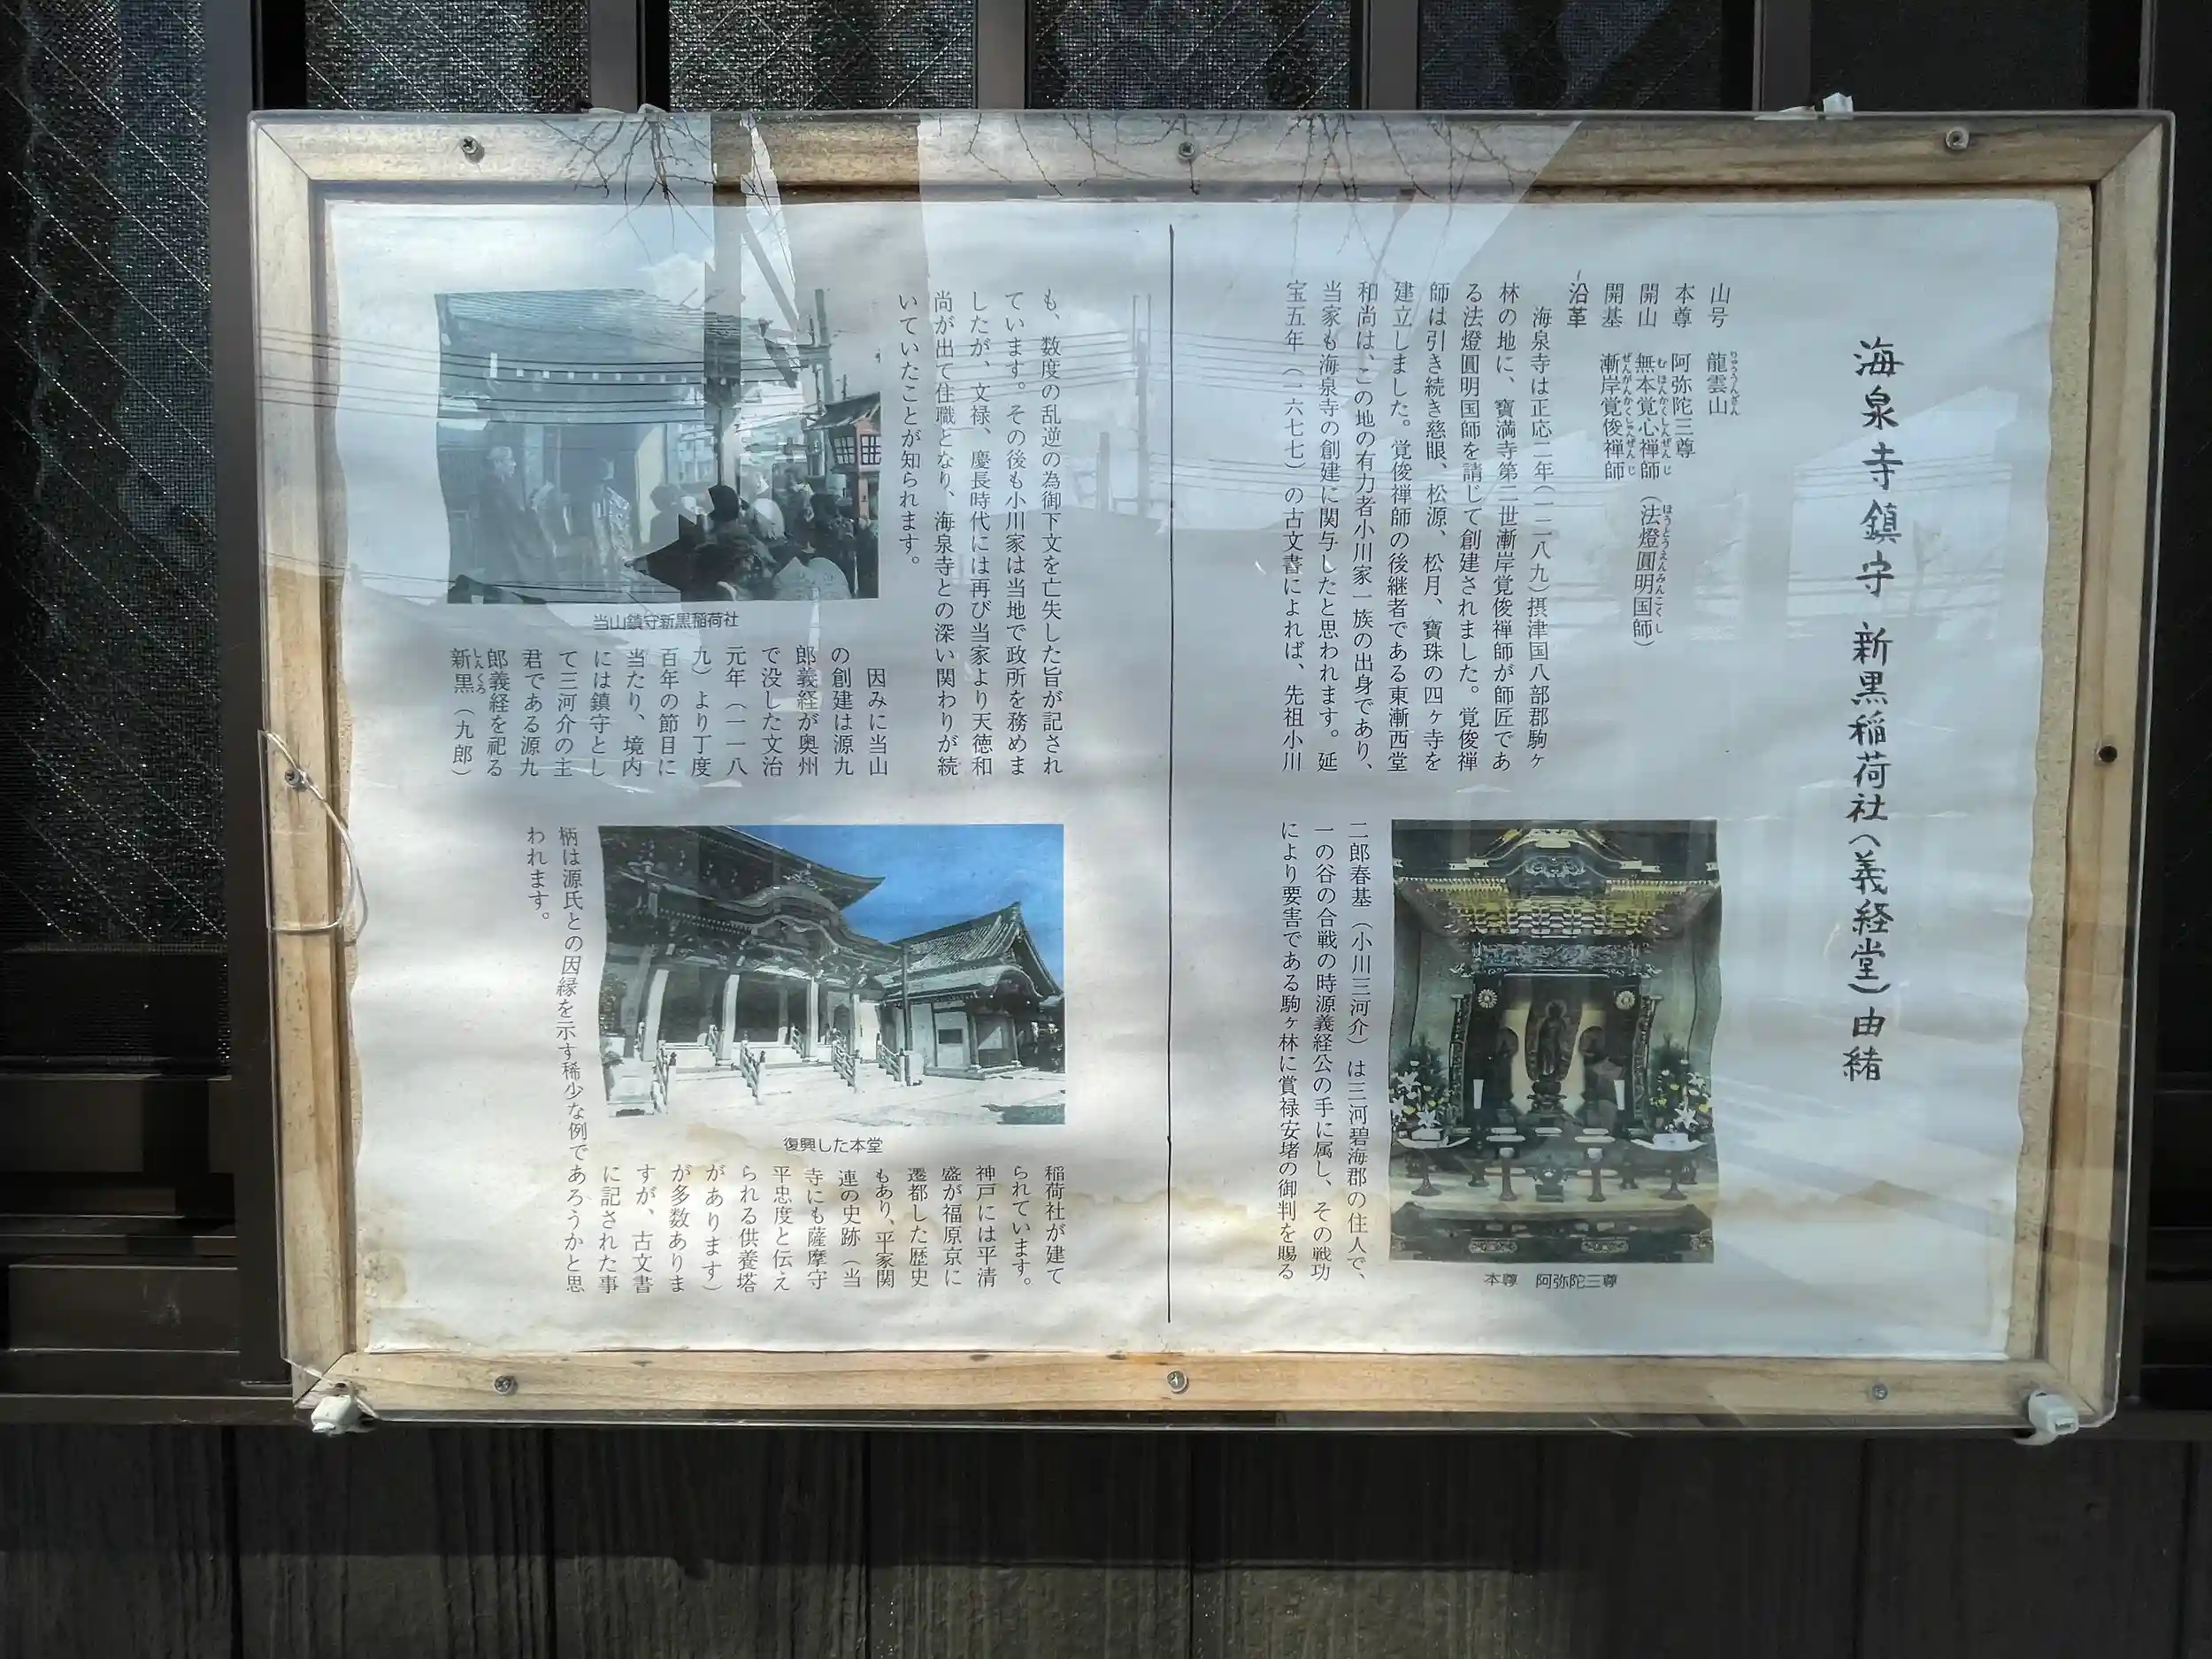 海泉寺鎮守 新黒稲荷社(義経堂)由緒
山号 龍雲山
りゅううんざん
本尊 阿弥陀三尊
開山 無本覚心禅師(法燈圓明国師)
むほんかくしんぜんじ ほうとうえんみんこくし
開基 漸岸覚俊禅師
ぜんがんかくしゅんぜんじ
沿革
海泉寺は正応二年(一二八九)摂津国八部郡駒ヶ
林の地に、寶満寺第二世漸岸覚俊禅師が師匠であ
る法燈圓明国師を請じて創建されました。覚俊禅
師は引き続き慈眼、松源、松月、寶珠の四ヶ寺を
建立しました。覚俊禅師の後継者である東漸西堂
和尚は、この地の有力者小川家一族の出身であり、
当家も海泉寺の創建に関与したと思われます。延
宝五年(一六七七)の古文書によれば、先祖小川
本尊 阿弥陀三尊
二郎春基(小川三河介)は三河碧海郡の住人で、
一の谷の合戦の時源義経公の手に属し、その戦功
により要害である駒ヶ林に賞禄安堵の御判を賜る
も、数度の乱逆の為御下文を亡失した旨が記され
ています。その後も小川家は当地で政所を務めま
したが、文禄、慶長時代には再び当家より天徳和
尚が出て住職となり、海泉寺との深い関わりが続
いていたことが知られます。
当山鎮守新黒稲荷社
因みに当山
の創建は源九
郎義経が奥州
で没した文治
元年(一一八
九)より丁度
百年の節目に
当たり、境内
には鎮守とし
て三河介の主
君である源九
郎義経を祀る
新黒(九郎)
しんくろ
復興した本堂
稲荷社が建て
られています。
神戸には平清
盛が福原京に
遷都した歴史
もあり、平家関
連の史跡(当
寺にも薩摩守
平忠度と伝え
られる供養塔
があります)
が多数ありま
すが、古文書
に記された事
柄は源氏との因縁を示す稀少な例であろうかと思
われます。